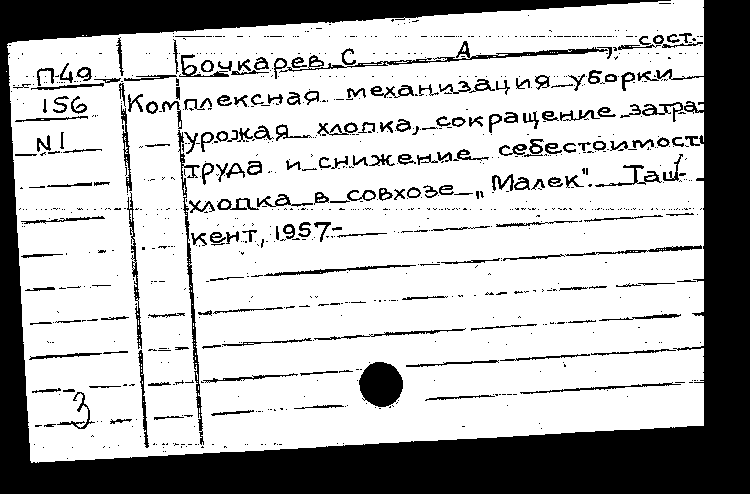 П49 Бочкарев, С А , сост.
156 Комплексная механизация уборки
N1 урожая хлопка, сокращение затрат
труда и снижение себестоимости
хлопка в совхозе „Малек". Таш-
кент, 1957-
3